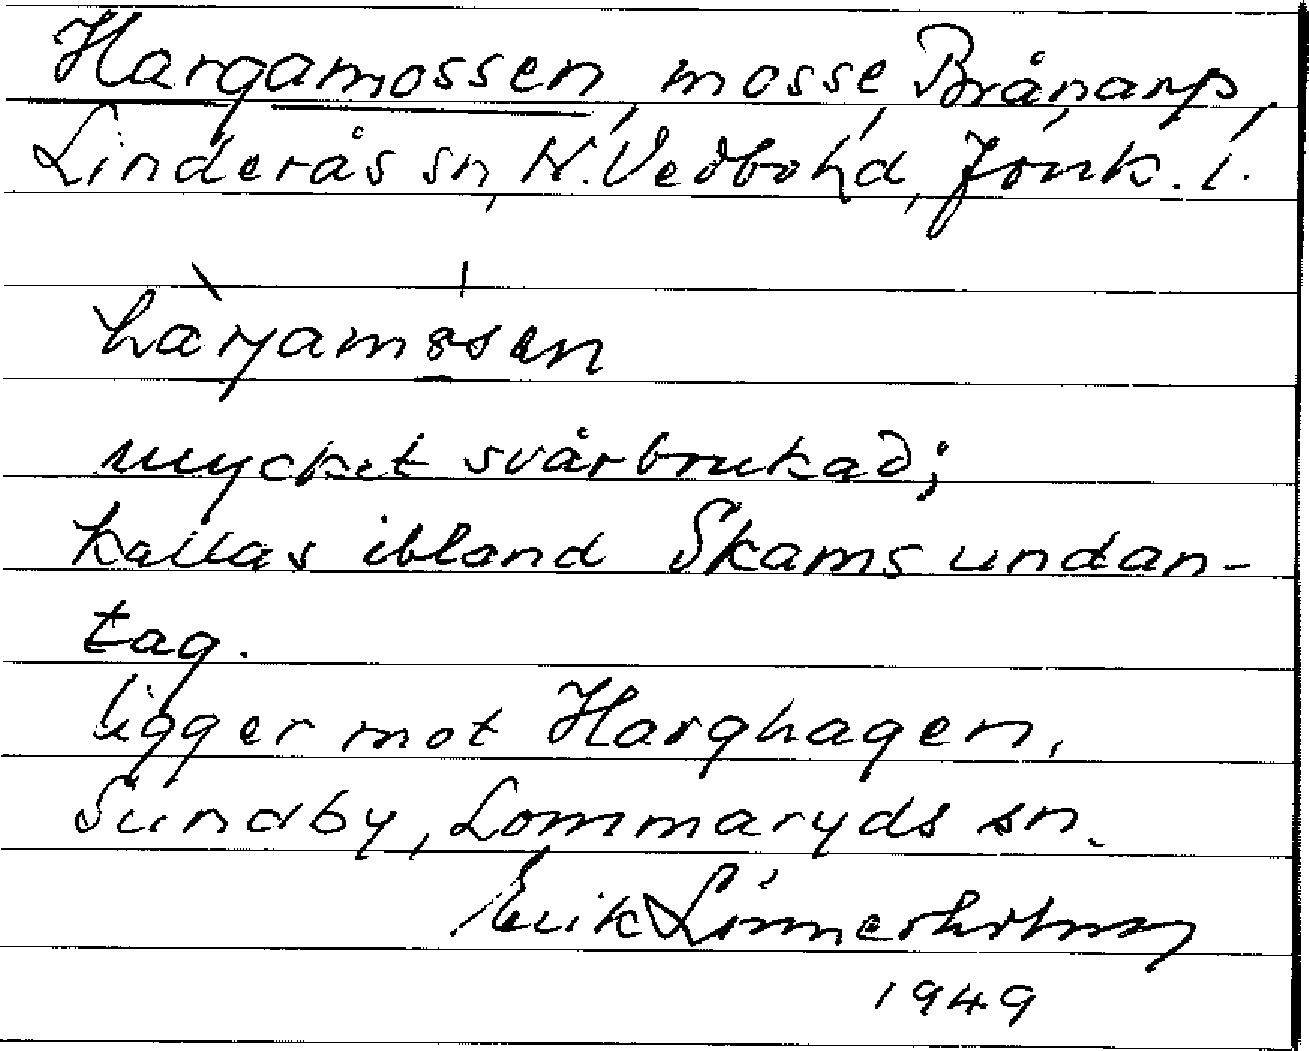 Hargamossen, mosse, Brånarp,
Linderås sn, N. Vedbo hd, Jönk. l.
hàrjamȯssen
mycket svårbrukad;
kallas ibland Skams undan-
tag.
ligger mot Harghagen,
Sundby, Lommaryds sn.
Erik Linnerholm
1949